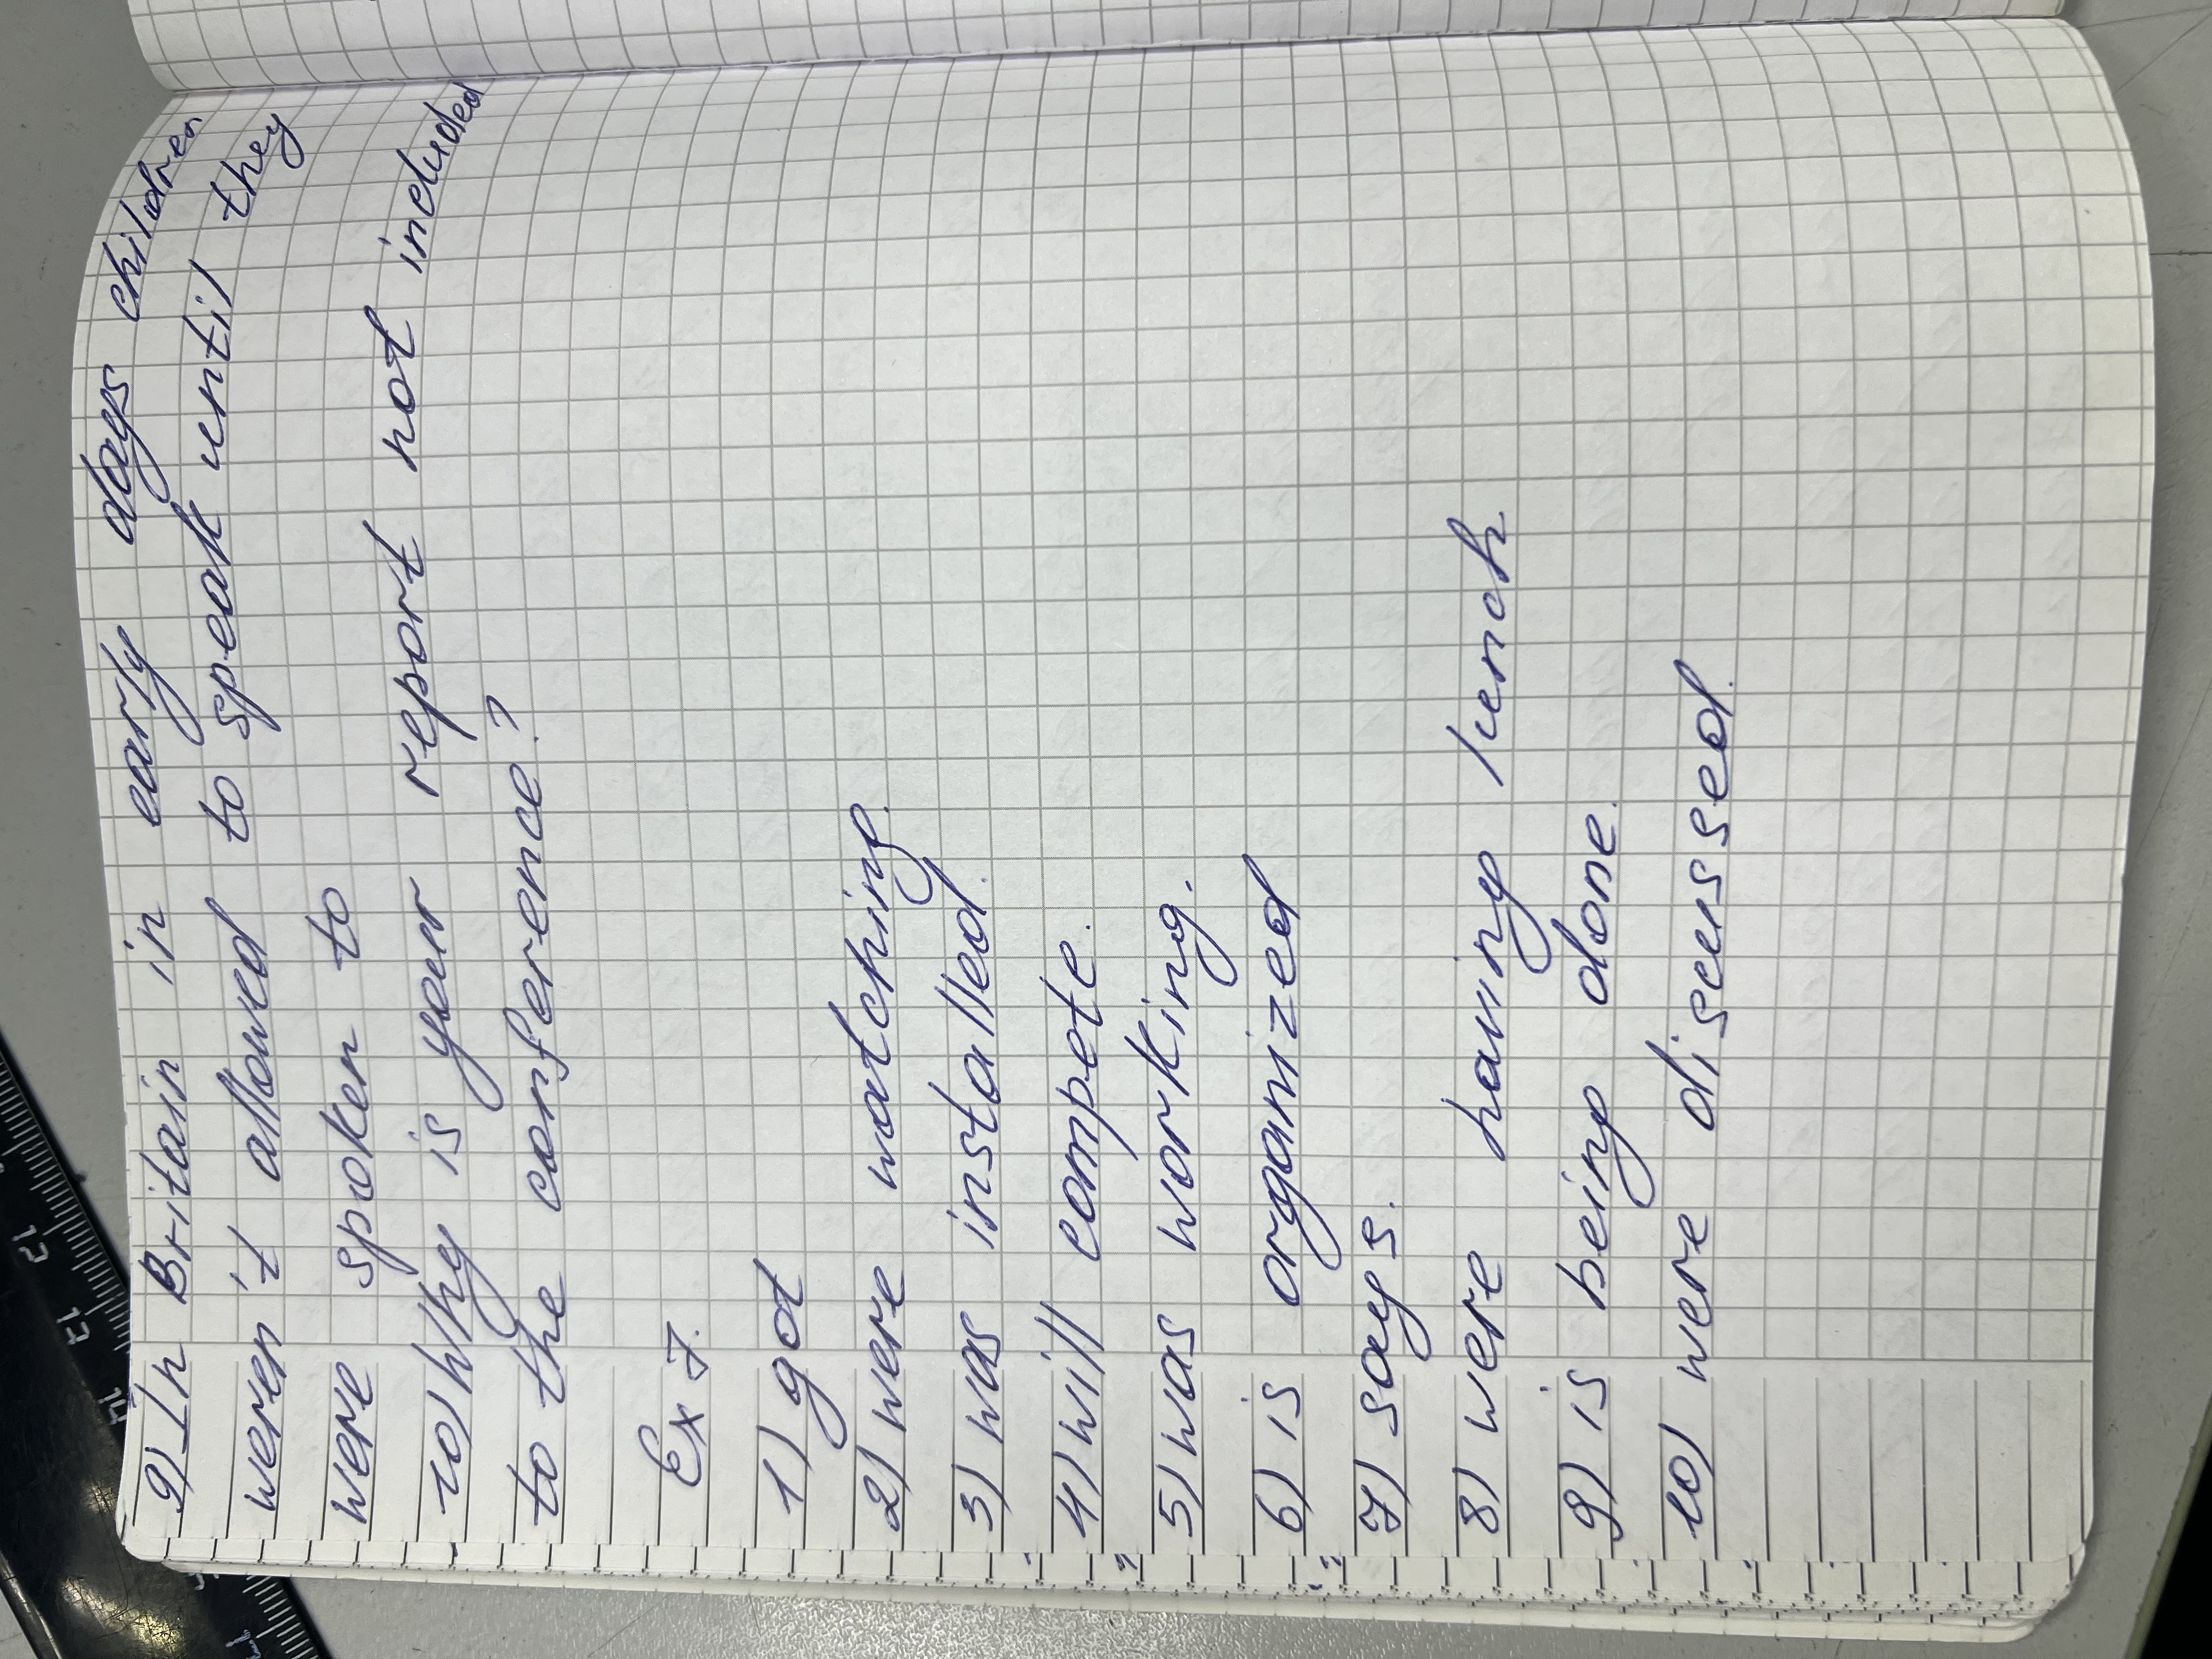 9) In Britain in early days children
weren't allowed to speak until they
were spoken to
10) Why is your report not included
to the conference?
Ex 7.
1) got
2) were watching.
3) was installed.
4) will compete.
5) was working.
6) is organized
7) says.
8) were having lunch
9) is being done.
10) were discussed.
12
13
14